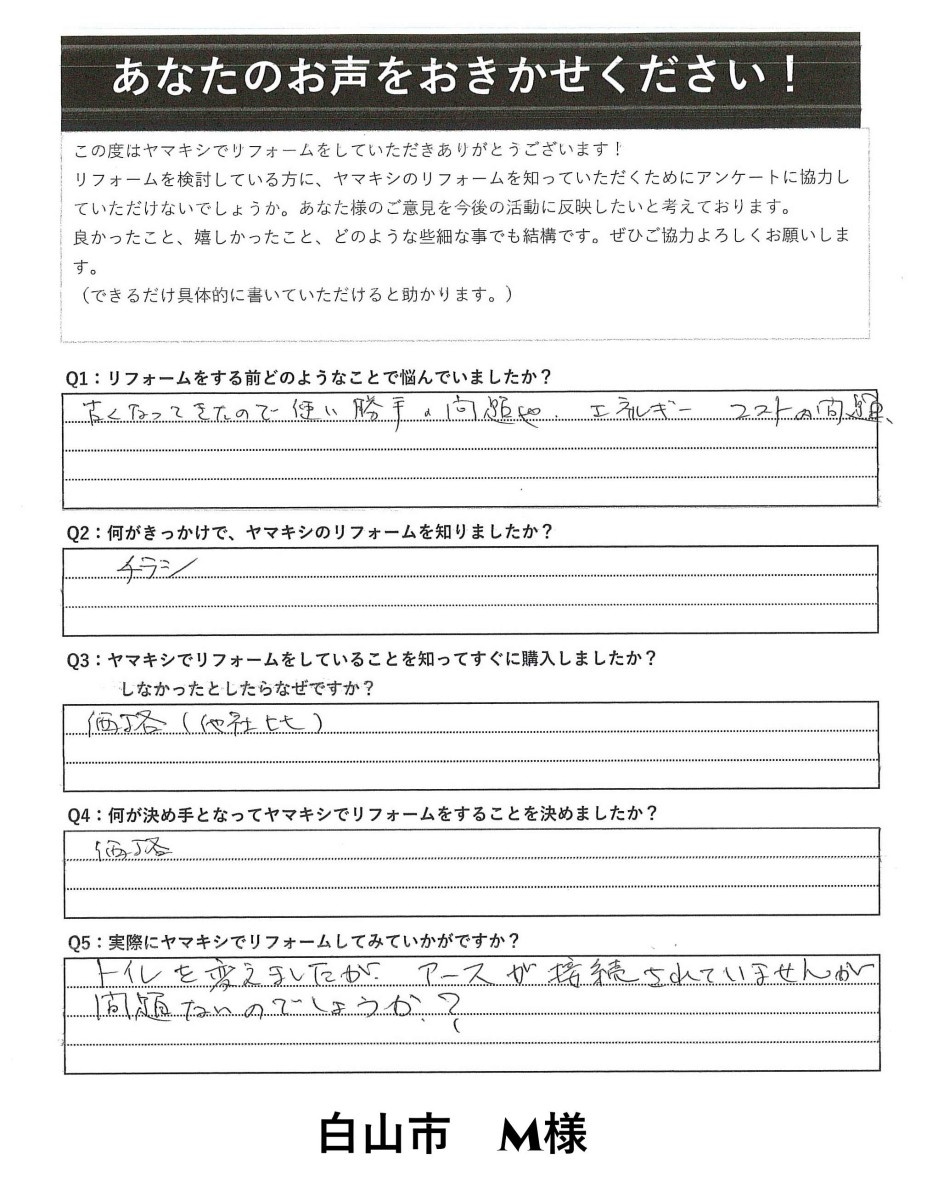 あなたのお声をおきかせください！
この度はヤマキシでリフォームをしていただきありがとうございます！
リフォームを検討している方に、ヤマキシのリフォームを知っていただくためにアンケートに協力し
ていただけないでしょうか。あなた様のご意見を今後の活動に反映したいと考えております。
良かったこと、嬉しかったこと、どのような些細な事でも結構です。ぜひご協力よろしくお願いしま
す。
（できるだけ具体的に書いていただけると助かります。）
Q1：リフォームをする前どのようなことで悩んでいましたか？
古くなってきたので使い勝手の問題や、エネルギーコストの問題、
Q2：何がきっかけで、ヤマキシのリフォームを知りましたか？
チラシ
Q3：ヤマキシでリフォームをしていることを知ってすぐに購入しましたか？
しなかったとしたらなぜですか？
価格（他社比）
Q4：何が決め手となってヤマキシでリフォームをすることを決めましたか？
価格
Q5：実際にヤマキシでリフォームしてみていかがですか？
トイレを変えましたが、アースが接続されていませんが
問題ないのでしょうか？
白山市　M様